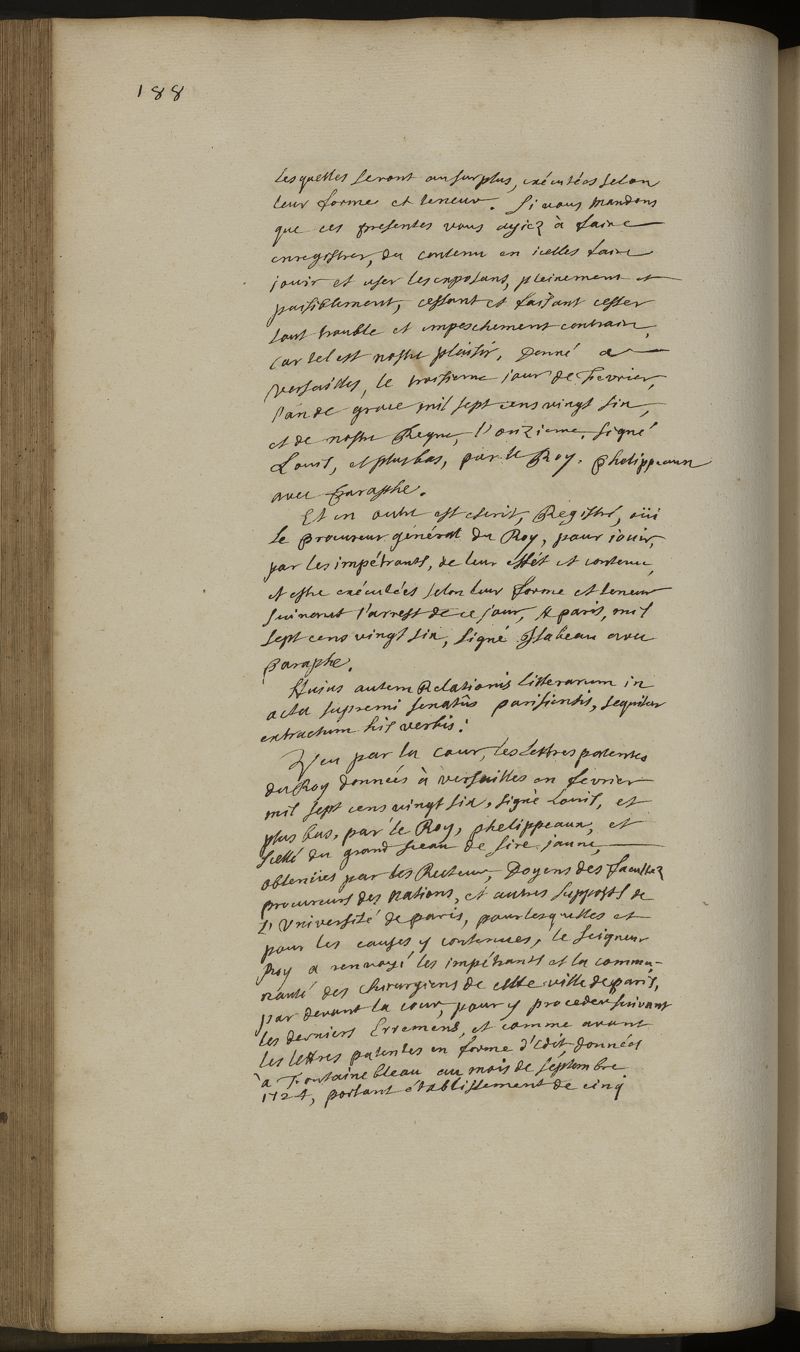 188
lesquelles seront au surplus, exécutées selon
leur forme et teneur. Si vous mandons
que ces presentes vous ayiez à faire
enregistrer, du contenu en icelles faire
jouir et user les exposans, pleinement et
paisiblement, cessant et faisant cesser
tout trouble et empeschement contraire,
car tel est nostre plaisir, Donné a
Versailles, le troisieme jour de Fevrier,
l'an de grace mil sept cens vingt six,
et de nostre Regne, l'onzieme, signé
Louis, et plus bas, par le Roy. Phelippeaux
avec Paraphe.
Et en outre est escrit, Registré, oüi
le procureur général du Roy, pour jouir,
par les impétrants, de leur effét et contenu,
et estre exécutées selon leur forme et teneur
suivant l'arrest de ce jour, A paris, mil
sept cens vingt six, signé Isabeau avec
Paraphe.
Huius autem Relationis litterarum in
acta supremi senatûs parisiensis, sequitur
extractum his verbis:
Veu par la cour, les lettres patentes
du Roy données à versailles en février
mil sept cens vingt six, signé Louis, et
plus bas, par le Roy, phelippeaux, et
scellé du grand sceau de sire jaune,
obtenües par les Recteur, Doyens des facultez
procureurs des Nations, et autres supposts de
L'Université de paris, pour lesquelles et
pour les causes y contenues, le seigneur
Roy a renvoyé les impétrants et la commu-
nauté des chirurgiens de cette ville de paris,
par devant la cour, pour y proceder suivant
les derniers Erremens, et comme avant
les lettres patentes en forme d'édit, données
à Fontainebleau au mois de septembre
1724, portant établissement de cinq